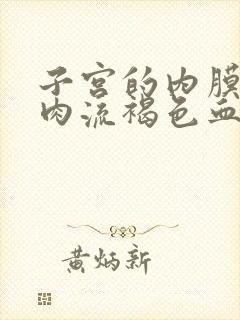 子宫的内膜
肉流褐色血
黄炳新